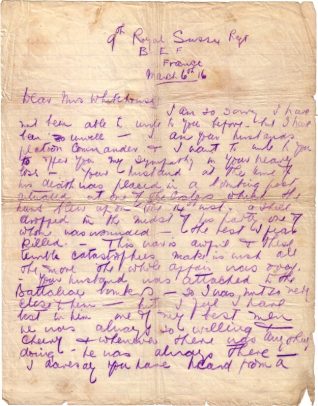 9th Royal Sussex Regt
B E F
France
March 6th 16
Dear Mrs Whitehouse
I am so sorry I have
not been able to write to you before - but I have
been so unwell - I am your husbands
Platoon Commander & I want to write to you
to offer you my sympathy in your heavy
loss - Your husband at the time of
his death was placed in a bombing post
situated at one of the craters which the
had blown up a shell
dropped in the midst of the party one of
whom was wounded - the rest were
killed. - This war is awful & these
terrible catastrophes make us wish all
the more the whole affair was over.
Your husband was attached to the
Battalion - so I was not
but I feel I have
lost in him one of my best men
he was always so willing &
cheery & whenever there was any thing
doing - he was always there -
I daresay you have heard from a